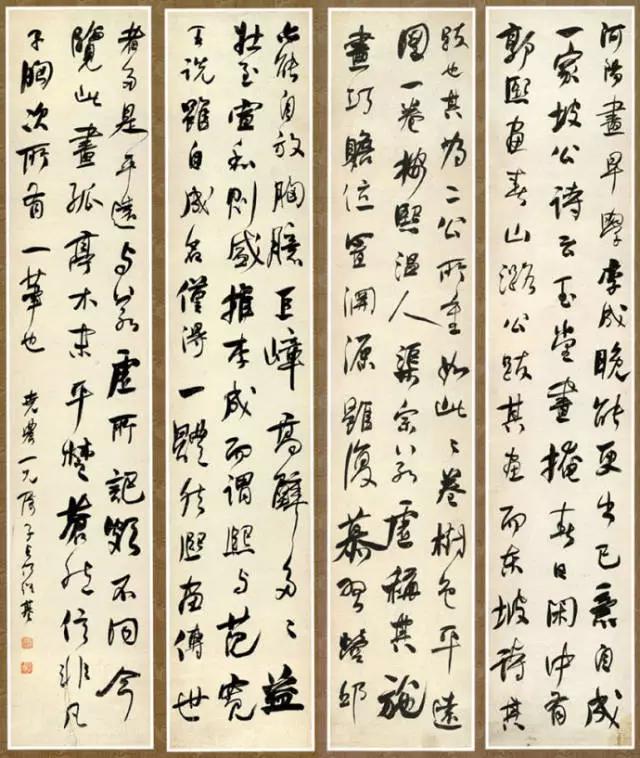 河陽畫早學李成晚能更出己意自成
一家坡公詩云玉堂晝掩春日閑中有
郭熙畫春山潞公跋其畫而東坡詩其
跋也其為二公所重如此〻卷樹色平遠
圖一卷按熙溫人渠宗若虛稱其施
畫巧贍位置淵源雖復慕習營邱
亦能自放胸臆巨嶂高壁多〻益
壯至宣和則盛推李成而謂熙与范寬
王詵雖自成名僅得一體然熙畫傳世
者多是平遠与若虛所記頗不同今
覽此畫孤亭木末平楚蒼然信非凡
子胸次所有一筆也
堯農兄屬子貞何紹基